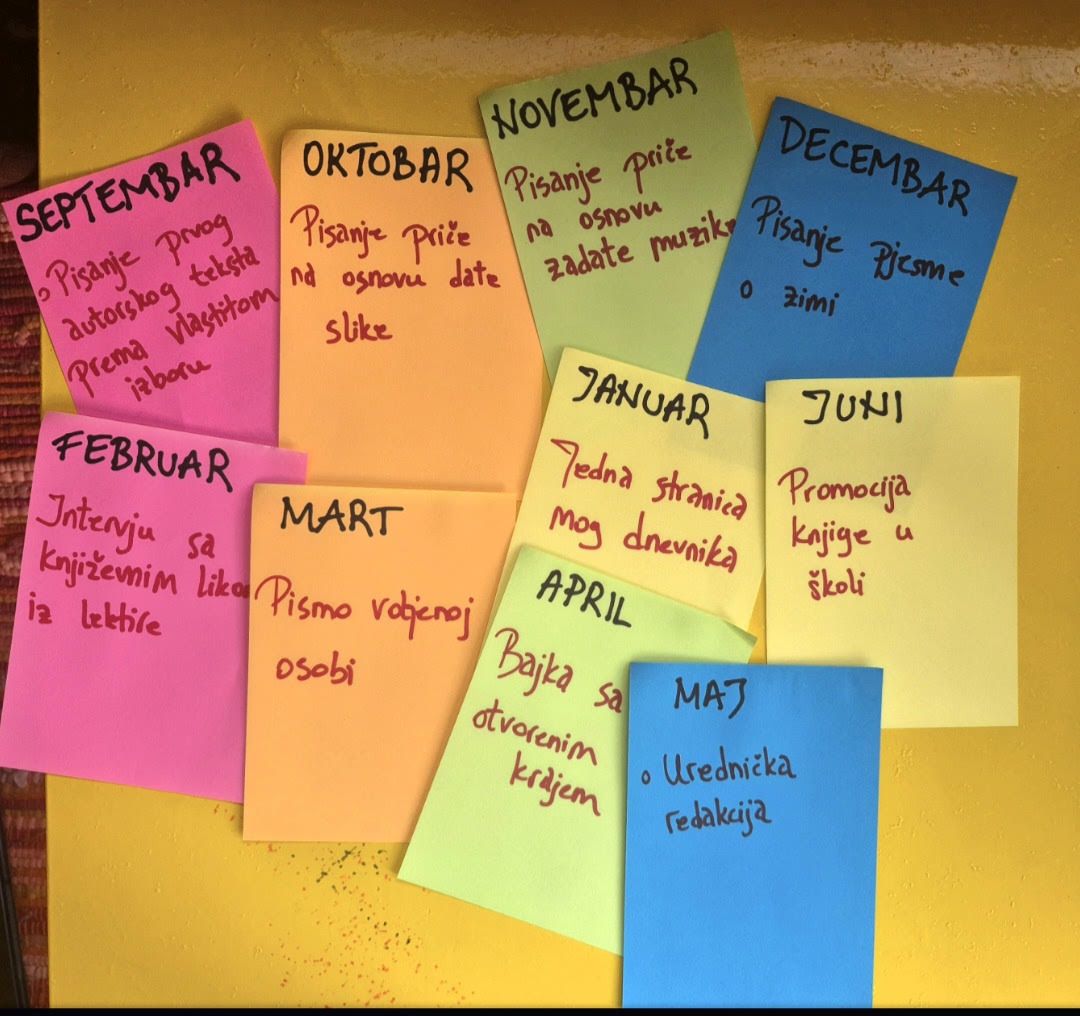 SEPTEMBAR
o Pisanje prvog
autorskog teksta
prema vlastitom
izboru
OKTOBAR
Pisanje priče
na osnovu date
slike
NOVEMBAR
Pisanje priče
na osnovu
zadate muzike
DECEMBAR
Pisanje pjesme
o zimi
JANUAR
Jedna stranica
mog dnevnika
FEBRUAR
Intervju sa
književnim
iz lektire
MART
Pismo voljenoj
osobi
APRIL
Bajka sa
otvorenim
krajem
MAJ
o Urednička
redakcija
JUNI
Promocija
knjige u
školi